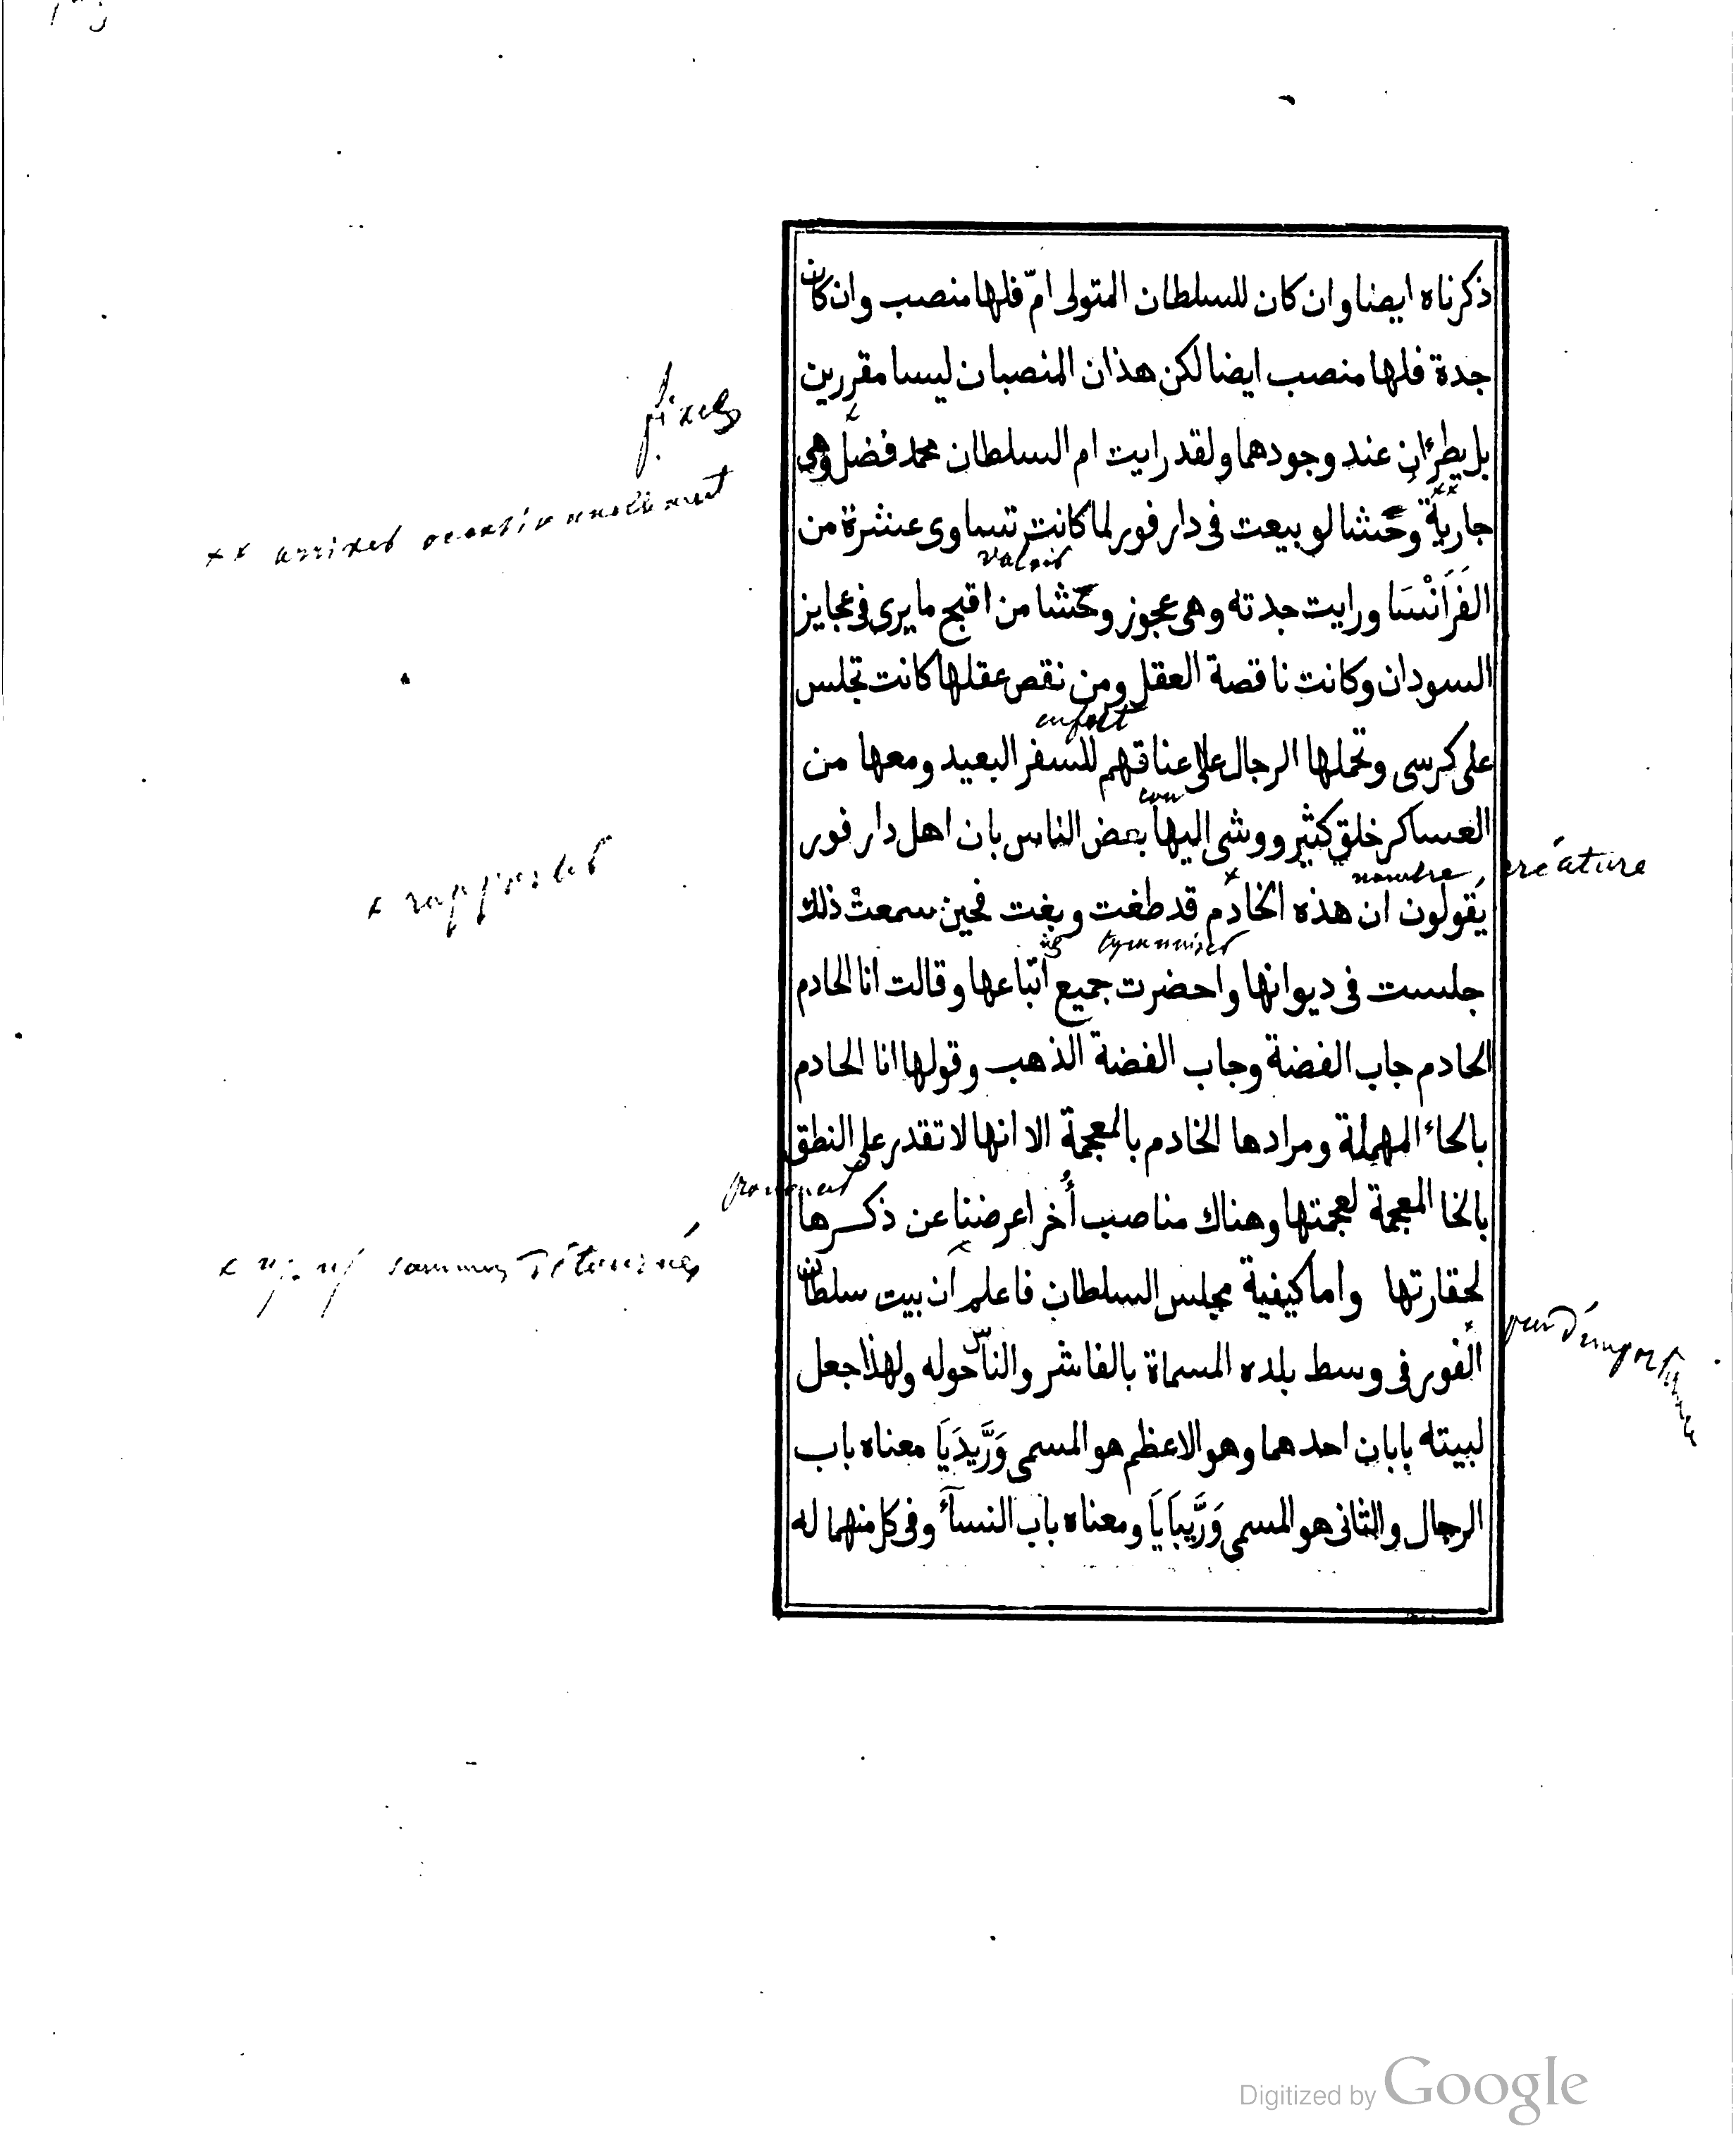 ذكرناه ايضا وان كان للسلطان المتولى امّ فلها منصب وان كان
جدة فلها منصب ايضا لكن هذان المنصبان ليسا مقررين
fixes
بل يطرءان عند وجودهما ولقد رايت ام السلطان محمد فضل وهى
×× arrives occasionnellement
جارية وخشا لو بيعت فى دار فور لما كانت تساوى عشرة من
valoir
الفَرَانْسَا ورايت جدته وهى عجوز وخشا من اقبح ما يرى فى عجايز
السودان وكانت ناقصة العقل ومن نقص عقلها كانت تجلس
على كرسى وتحملها الرجال على اعناقهم للسفر البعيد ومعها من
cou
العساكر خلق كثير ووشى اليها بعض الناس بان اهل دار فور
nombre créature
× rapporter
يقولون ان هذه الخادم قد طغت وبغت فحين سمعت ذلك
tyranniser
جلست فى ديوانها واحضرت جميع اتباعها وقالت انا الحادم
الحادم جاب الفضة وجاب الفضة الذهب وقولها انا الحادم
بالحاء المهملة ومرادها الخادم بالمعجمة الا انها لا تقدر على النطق
بالخا المعجمة لعجمتها وهناك مناصب أُخر اعرضنا عن ذكرها
× sommes détournés
لحقارتها واما كيفية مجلس السلطان فاعلم ان بيت سلطان
peu d'importance
الفور فى وسط بلده المسماة بالفاشر والناس حوله ولهذا جعل
لبيته بابان احدهما وهو الاعظم هو المسمى وَرَّيدَيَا معناه باب
الرجال والثانى هو المسمى وَرَّيبَايَا ومعناه باب النسآء وفى كل منهما له
Digitized by Google